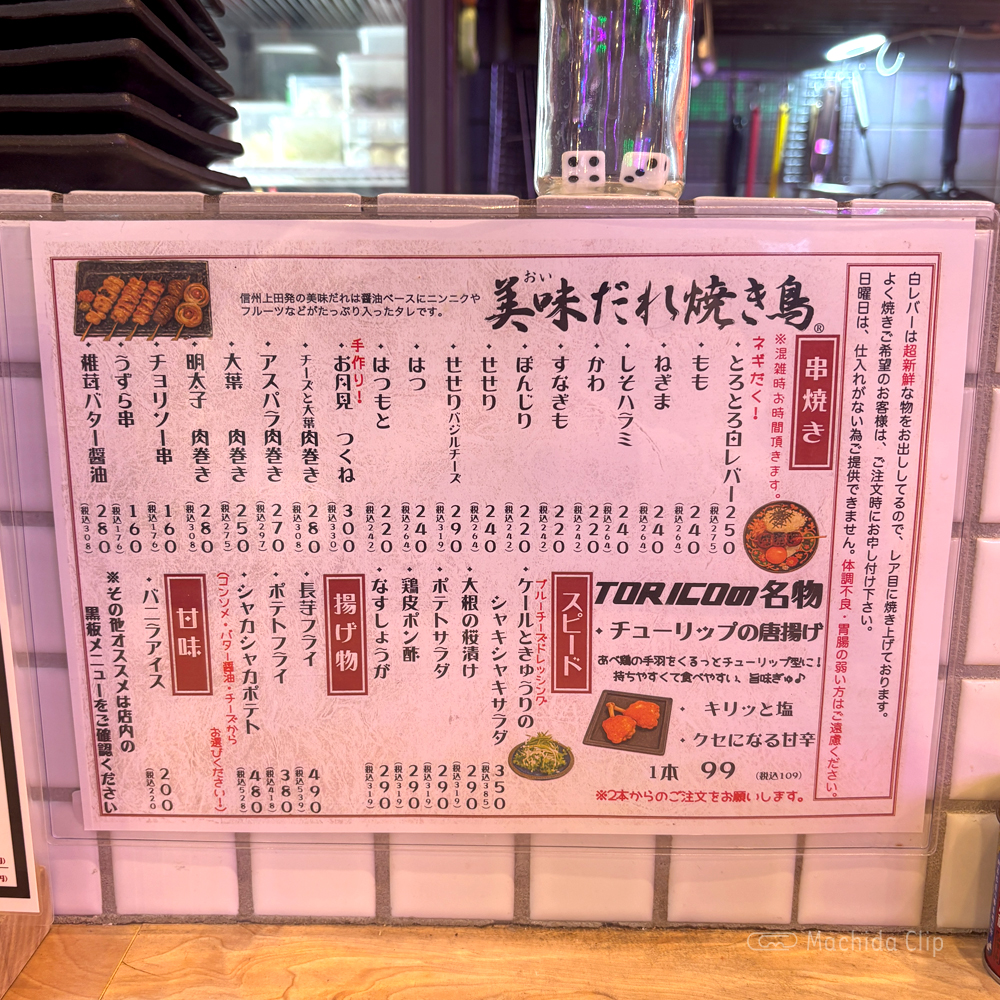 美味だれ焼き鳥®
おい
信州上田発の美味だれは醤油ベースにニンニクや
フルーツなどがたっぷり入ったタレです。
白レバーは超新鮮な物をお出ししてるので、レア目に焼き上げております。
よく焼きご希望のお客様は、ご注文時にお申し付け下さい。
日曜日は、仕入れがない為ご提供できません。体調不良・胃腸の弱い方はご遠慮ください。
串焼き
※混雑時お時間頂きます。
ネギだく!
・とろとろ白レバー 250 (税込275)
・もも 240 (税込264)
・ねぎま 240 (税込264)
・しそハラミ 240 (税込264)
・かわ 220
・すなぎも 220 (税込242)
・ぼんじり 220 (税込242)
・せせり 240 (税込264)
・せせりバジルチーズ 290 (税込319)
・はつ 240 (税込264)
・はつもと 220 (税込242)
手作り!
・お月見 つくね 300 (税込330)
・チーズと大葉肉巻き 280 (税込308)
・アスパラ肉巻き 270 (税込297)
・大葉 肉巻き 250 (税込275)
・明太子 肉巻き 280 (税込308)
・チョリソー串 160 (税込176)
・うずら串 160 (税込176)
・椎茸バター醤油 280 (税込308)
TORICOの名物
・チューリップの唐揚げ
あべ鶏の手羽をくるっとチューリップ型に!
持ちやすくて食べやすい、旨味ぎゅ♪
・キリッと塩
・クセになる甘辛
1本 99 (税込109)
※2本からのご注文をお願いします。
スピード
ブルーチーズドレッシング
・ケールときゅうりの
シャキシャキサラダ 350 (税込385)
・大根の桜漬け 290 (税込319)
・ポテトサラダ 290 (税込319)
・鶏皮ポン酢 290 (税込319)
・なすしょうが 290 (税込319)
揚げ物
・長芋フライ 490 (税込539)
・ポテトフライ 380 (税込418)
・シャカシャカポテト 480 (税込528)
(コンソメ・バター醤油・チーズから
お選びください!)
甘味
・バニラアイス 200 (税込220)
※その他オススメは店内の
黒板メニューをご確認ください
Machida Clip